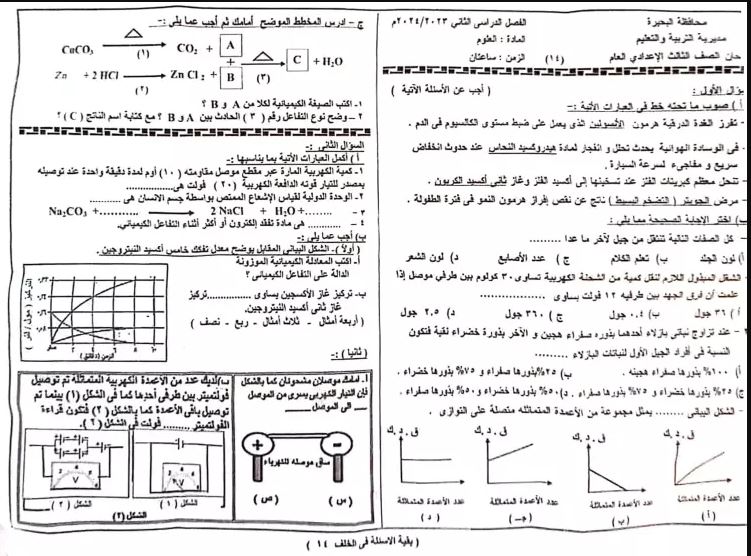 محافظة البحيرة
مديرية التربية والتعليم
الفصل الدراسى الثانى ٢٠٢٣/٢٠٢٤م
المادة : العلوم
الزمن : ساعتان
(١٤)
حان الصف الثالث الإعدادي العام
ؤال الأول :
( أجب عن الأسئلة الآتية )
أ) صوب ما تحته خط فى العبارات الآتية :-
- تفرز الغدة الدرقية هرمون الأنسولين الذى يعمل على ضبط مستوى الكالسيوم فى الدم .
- فى الوسادة الهوائية يحدث تحلل و انفجار لمادة هيدروكسيد النحاس عند حدوث انخفاض
سريع و مفاجىء لسرعة السيارة .
- تنحل معظم كبريتات الفلز عند تسخينها إلى أكسيد الفلز وغاز ثانى أكسيد الكربون .
- مرض الجويتر ( التضخم البسيط ) ناتج عن نقص إفراز هرمون النمو فى فترة الطفولة .
ب) اختر الإجابة الصحيحة مما يلى :
- كل الصفات التالية تنتقل من جيل لآخر ما عدا ..........
أ) لون الجلد ب) تعلم الكلام ج ) عدد الأصابع د) لون الشعر
- الشغل المبذول اللازم لنقل كمية من الشحنة الكهربية تساوى ٣٠ كولوم بين طرفى موصل إذا
علمت أن فرق الجهد بين طرفيه ١٢ فولت يساوى ..........
أ ) ٣٦ جول ب) ٠.٤ جول ج ) ٣٦٠ جول د) ٢.٥ جول
- عند تزاوج نباتى بازلاء أحدهما بذوره صفراء هجين و الآخر بذورة خضراء نقية فتكون
النسبة فى أفراد الجيل الأول لنباتات البازلاء ..........
أ) ١٠٠% بذورها صفراء هجينه . ب) ٢٥% بذورها صفراء و ٧٥% بذورها خضراء .
ج) ٢٥% بذورها خضراء و ٧٥% بذورها صفراء . د) ٥٠% بذورها خضراء و ٥٠% بذورها صفراء .
- الشكل البيانى ........ يمثل مجموعة من الأعمدة المتماثله متصلة على التوازى .
ق . د . ك ق . د . ك ق . د . ك ق . د . ك
عدد الأعمدة المتماثلة عدد الأعمدة المتماثلة عدد الأعمدة المتماثلة عدد الأعمدة المتماثلة
(أ) (ب) (جـ) ( د )
ج - ادرس المخطط الموضح أمامك ثم أجب عما يلى :-
CaCO₃ △ (١) CO₂ + A
+ △ (٣) C + H₂O
Zn + 2 HCl (٢) Zn Cl₂ + B
١- اكتب الصيغة الكيميائية لكلا من A و B ؟
٢ – وضح نوع التفاعل رقم ( ٣ ) الحادث بين A و B ؟ مع كتابة اسم الناتج ( C ) ؟
السؤال الثانى :-
أ ) أكمل العبارات الآتية بما يناسبها :-
١- كمية الكهربية المارة عبر مقطع موصل مقاومته ( ١٠ ) أوم لمدة دقيقة واحدة عند توصيله
بمصدر للتيار قوته الدافعة الكهربية ( ٢٠ ) فولت هى..........
٢- الوحدة الدولية لقياس الإشعاع الممتص بواسطة جسم الانسان هى ..........
٣ – Na₂CO₃ +............ → 2 NaCl + H₂O +........
٤ – ............ هى مادة تفقد إلكترون أو أكثر أثناء التفاعل الكيميائي.
ب) أجب عما يلى :-
( أولاً ) - الشكل البيانى المقابل يوضح معدل تفكك خامس أكسيد النيتروجين .
أ- اكتب المعادلة الكيميائية الموزونة
الدالة على التفاعل الكيميائى ؟
ب- تركيز غاز الأكسجين يساوى ............تركيز
غاز ثانى أكسيد النيتروجين.
( أربعة أمثال - ثلاث أمثال - ربع - نصف )
التركيز ( مول / لتر )
الزمن (دقائق)
( ثانيا ) :-
أ. أمامك موصلان مشحونان كما بالشكل
فإن التيار الكهربى يسرى من الموصل
..... الى الموصل .....
+ −
ساق موصلة للكهرباء
(ص) (س)
ب) لديك عدد من الأعمدة الكهربية المتماثلة تم توصيل
فولتميتر بين طرفى أحدها كما فى الشكل (١) بينما تم
توصيل باقى الأعمدة كما بالشكل ( ٢ ) فتكون قراءة
الفولتميتر .......... فولت فى الشكل ( ٢ ) .
V V
الشكل ( ١ ) الشكل ( ٢ )
الشكل (٢)
( بقية الاسئلة فى الخلف ١٤ )